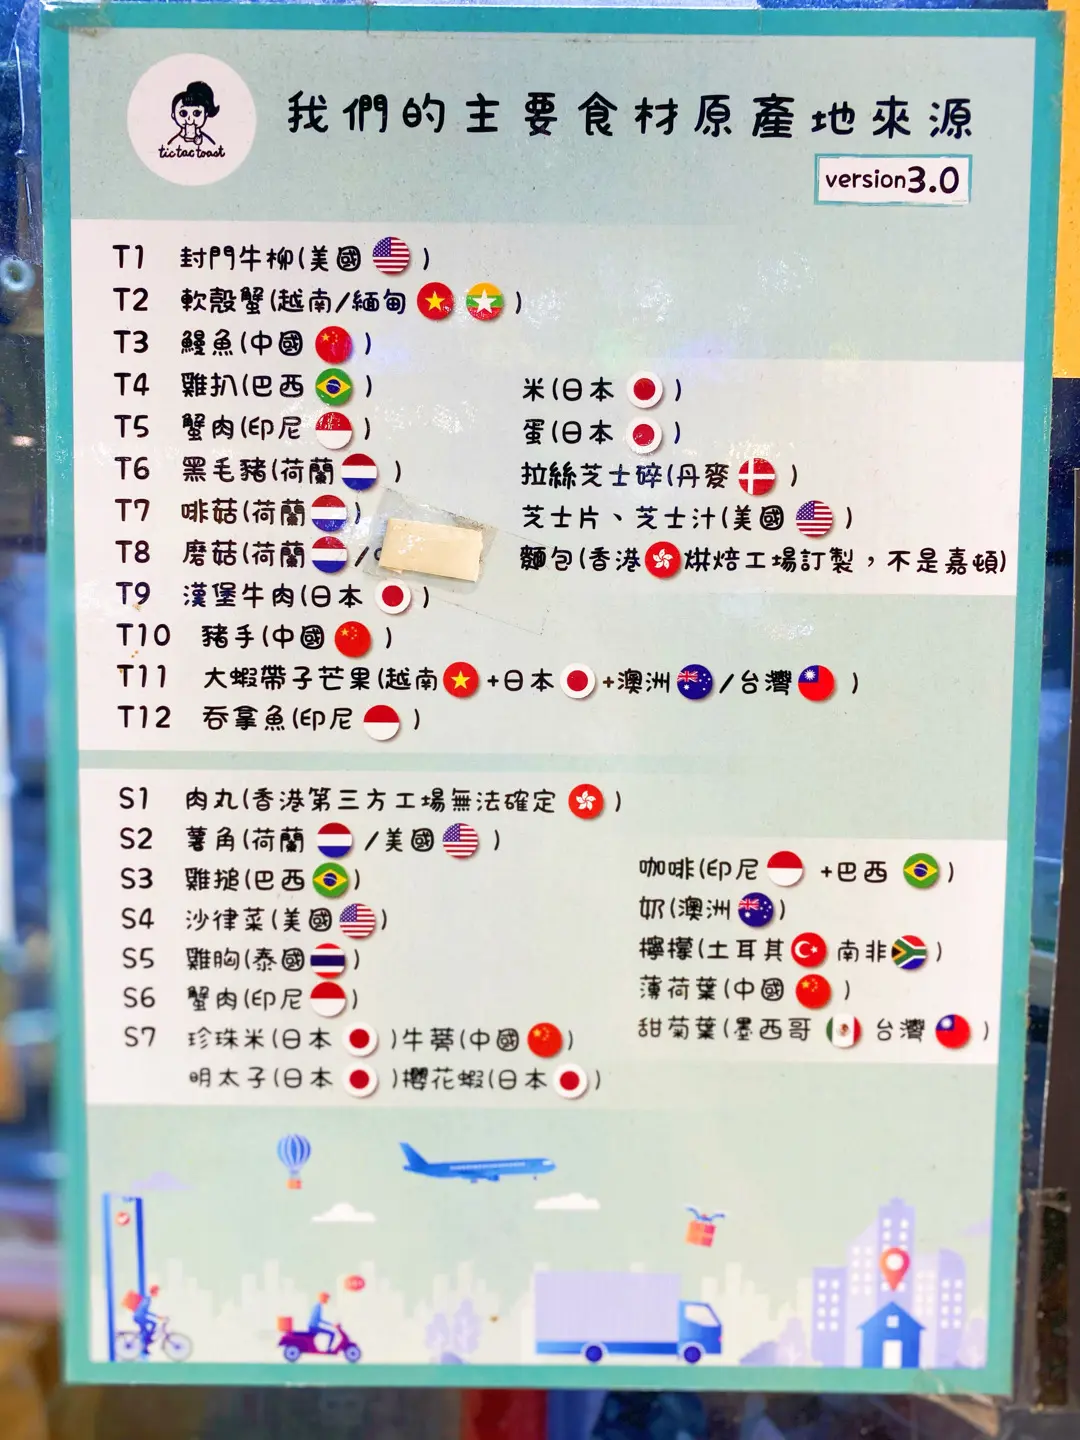 tictactoast
我們的主要食材原產地來源
version3.0
T1 封門牛柳(美國)
T2 軟殼蟹(越南/緬甸)
T3 鰻魚(中國)
T4 雞扒(巴西)
T5 蟹肉(印尼)
T6 黑毛豬(荷蘭)
T7 啡菇(荷蘭)
T8 磨菇(荷蘭/
T9 漢堡牛肉(日本)
T10 豬手(中國)
T11 大蝦帶子芒果(越南+日本+澳洲/台灣)
T12 吞拿魚(印尼)
米(日本)
蛋(日本)
拉絲芝士碎(丹麥)
芝士片、芝士汁(美國)
麵包(香港烘焙工場訂製，不是嘉頓)
S1 肉丸(香港第三方工場無法確定)
S2 薯角(荷蘭/美國)
S3 雞搥(巴西)
S4 沙律菜(美國)
S5 雞胸(泰國)
S6 蟹肉(印尼)
S7 珍珠米(日本)牛蒡(中國)
明太子(日本)櫻花蝦(日本)
咖啡(印尼+巴西)
奶(澳洲)
檸檬(土耳其 南非)
薄荷葉(中國)
甜菊葉(墨西哥 台灣)